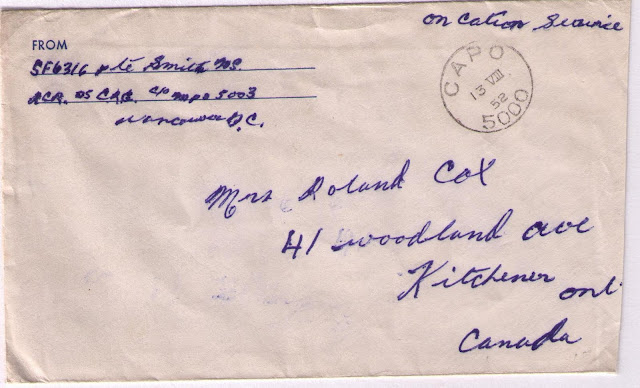 on cation Service
FROM
SF6316 pte Smith
C/O MPO 5003
Vancouver B.C.
CAPO
13 VIII
52
5000
Mrs Roland Cox
41 woodland ave
Kitchener ont
Canada